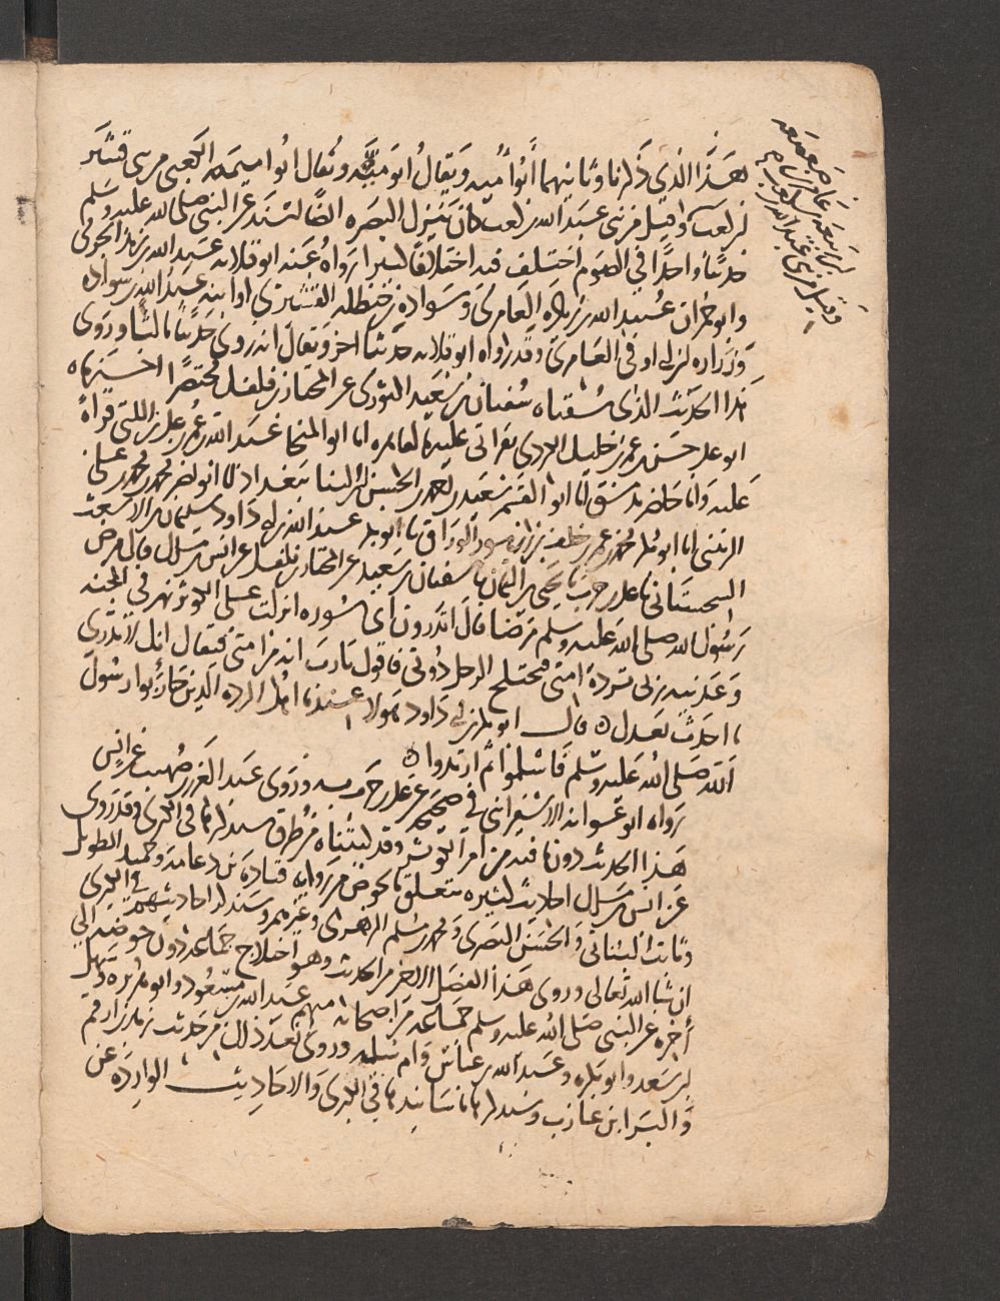 هذا الذي ذكرنا وثانيهما أبو أمية ويقال أبو مية ويقال أبو اميمه الكعبي من بني قشير
بن كعب وقيل من بني عبد الله بن كعب كان ينزل البصره ايضا لسند عن النبي صلى الله عليه وسلم
حديثا واحدا في الصوم اختلف فيه اختلافا كثيرا رواه عنه ابو قلابه عبد الله بن زيد الجرمي
وابو عبيد الله بن زياده العامري وسواده بن حنظله القشيري او ابنه عبد الله بن سواده
وزراره بن اوفى العامري وقد رواه ابو قلابه حديثا اخر ويقال انه روى حديثا ثالثا وروى
هذا الحديث الذي سقناه سفيان بن سعيد الثوري عن المختار بن فلفل مختصرا اخبرناه
ابو علي حسن بن عمر بن خليل بقراتي عليه بالعامره انا ابو المنجا عبد الله بن عمر بن علي بن اللتي قراة
عليه وانا حاضر بدمشق انا ابو القسم سعيد بن احمد بن الحسن بن البنا ببغداد انا ابو نصر محمد بن محمد بن علي
الزينبي انا ابو بكر محمد بن عمر بن خلف بن الوراق نا ابو بكر عبد الله بن ابي داود سليمان بن الاشعث
السجستاني نا علي بن حرب نا يحيى بن اليمان نا سفيان بن سعيد عن المختار بن فلفل عن انس بن مالك قال مرض
رسول الله صلى الله عليه وسلم مرضا قال اتدرون اي سوره انزلت علي الكوثر نهر في الجنه
وعدنيه ربي ترده امتي فيختلج الرجل دوني فاقول يا رب انه من امتي فيقال انك لا تدري
ما احدث بعدك قال ابو بكر بن ابي داود هولا عندنا اهل الرده الذين جاؤوا رسول
الله صلى الله عليه وسلم فاسلموا ثم ارتدوا
رواه ابو عوانه الاسفرايني في صحيحه عن علي بن حرب وروى عبد العزيز بن صهيب عن انس
هذا الحديث دون ما فيه من امر الكوثر وقد كتبناه من طرق سنذكرها في الكبرى وقد روى
عن انس بن مالك احاديث كثيره تتعلق بالحوض من روايه قتاده بن دعامه وحميد الطويل
وثابت البناني والحسن البصري ومحمد بن مسلم الزهري وغيرهم وسنذكر احاديثهم في الكبرى
ان شا الله تعالى وروى هذا الفصل الاخر من الحديث وهو اختلاج جماعه دون حوضه الى
اخره عن النبي صلى الله عليه وسلم جماعه من اصحابه منهم عبد الله بن مسعود وابو هريره وسهل
بن سعد وابو بكره وعبد الله بن عباس وام سلمه وروى بعد ذلك من حديث زيد بن ارقم
والبرا بن عازب وسنذكرها باسانيدها في الكبرى والاحاديث الوارده عن
بن ربيعه بن عامر بن صعصعه
وقيل من بني عبد الله بن كعب